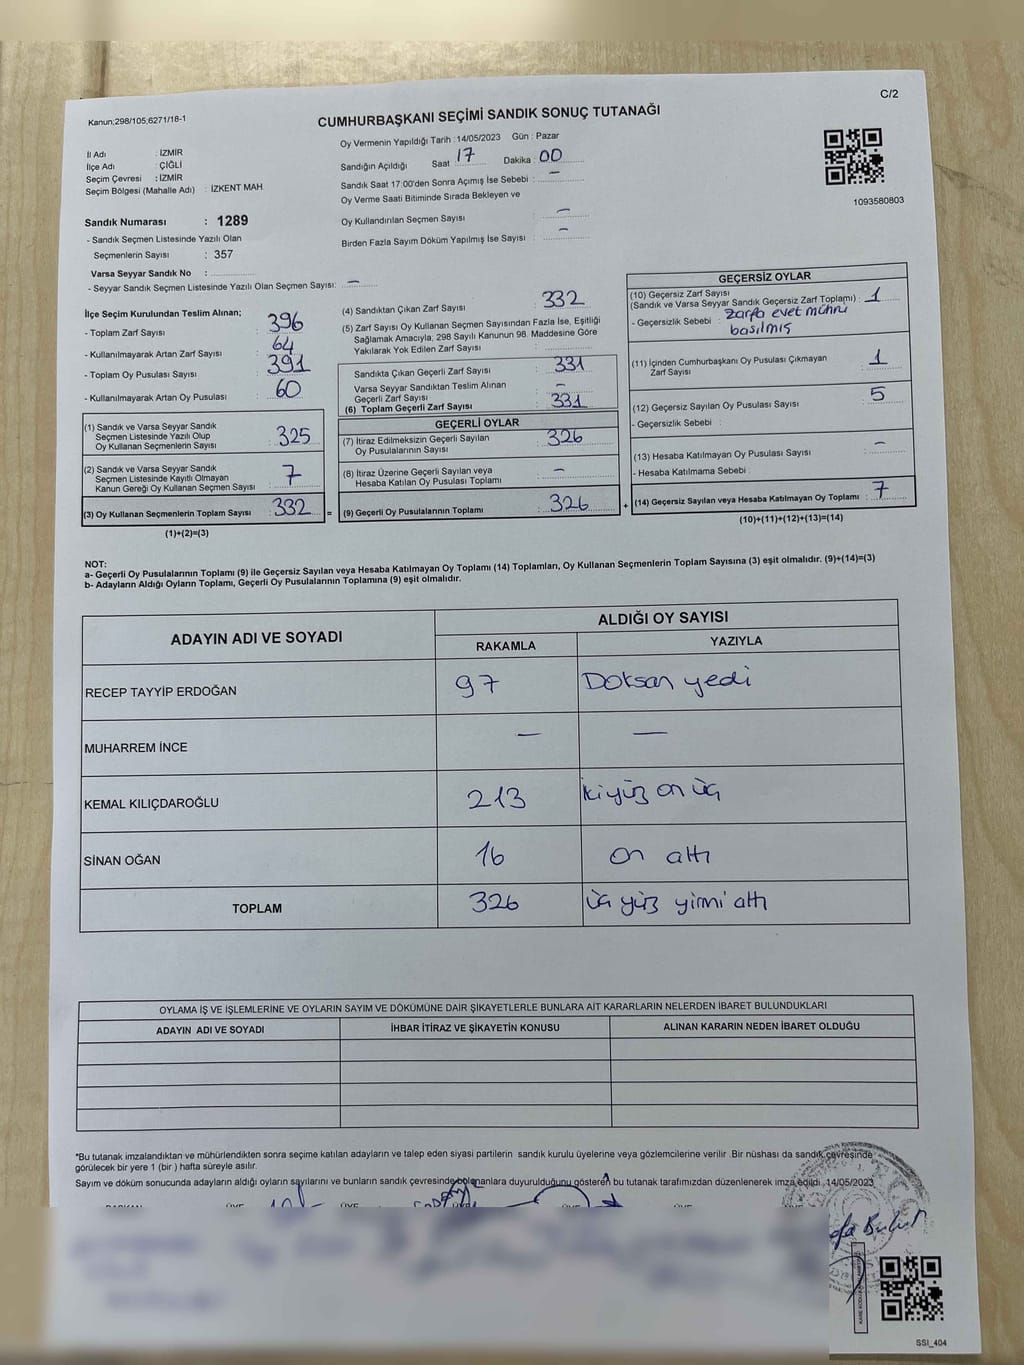 C/2
Kanun;298/105;6271/18-1
CUMHURBAŞKANI SEÇİMİ SANDIK SONUÇ TUTANAĞI
Oy Vermenin Yapıldığı Tarih :14/05/2023 Gün : Pazar
İl Adı : İZMİR
İlçe Adı : ÇİĞLİ
Seçim Çevresi : İZMİR
Seçim Bölgesi (Mahalle Adı) : İZKENT MAH.
Sandığın Açıldığı Saat 17 Dakika : 00
Sandık Saat 17:00'den Sonra Açımış İse Sebebi : –
Oy Verme Saati Bitiminde Sırada Bekleyen ve
Oy Kullandırılan Seçmen Sayısı : –
Birden Fazla Sayım Döküm Yapılmış İse Sayısı : –
1093580803
Sandık Numarası : 1289
- Sandık Seçmen Listesinde Yazılı Olan
Seçmenlerin Sayısı : 357
Varsa Seyyar Sandık No :
- Seyyar Sandık Seçmen Listesinde Yazılı Olan Seçmen Sayısı: –
İlçe Seçim Kurulundan Teslim Alınan;
- Toplam Zarf Sayısı : 396
- Kullanılmayarak Artan Zarf Sayısı : 64
- Toplam Oy Pusulası Sayısı : 391
- Kullanılmayarak Artan Oy Pusulası : 60
(1) Sandık ve Varsa Seyyar Sandık
Seçmen Listesinde Yazılı Olup
Oy Kullanan Seçmenlerin Sayısı : 325
(2) Sandık ve Varsa Seyyar Sandık
Seçmen Listesinde Kayıtlı Olmayan
Kanun Gereği Oy Kullanan Seçmen Sayısı : 7
(3) Oy Kullanan Seçmenlerin Toplam Sayısı : 332 =
(1)+(2)=(3)
(4) Sandıktan Çıkan Zarf Sayısı : 332
(5) Zarf Sayısı Oy Kullanan Seçmen Sayısından Fazla İse, Eşitliği
Sağlamak Amacıyla; 298 Sayılı Kanunun 98. Maddesine Göre
Yakılarak Yok Edilen Zarf Sayısı :
Sandıkta Çıkan Geçerli Zarf Sayısı : 331
Varsa Seyyar Sandıktan Teslim Alınan
Geçerli Zarf Sayısı : –
(6) Toplam Geçerli Zarf Sayısı : 331
GEÇERLİ OYLAR
(7) İtiraz Edilmeksizin Geçerli Sayılan
Oy Pusulalarının Sayısı : 326
(8) İtiraz Üzerine Geçerli Sayılan veya
Hesaba Katılan Oy Pusulası Toplamı : –
(9) Geçerli Oy Pusulalarının Toplamı : 326 +
GEÇERSİZ OYLAR
(10) Geçersiz Zarf Sayısı
(Sandık ve Varsa Seyyar Sandık Geçersiz Zarf Toplamı) : 1
- Geçersizlik Sebebi : Zarfa evet mührü
basılmış
(11) İçinden Cumhurbaşkanı Oy Pusulası Çıkmayan
Zarf Sayısı : 1
(12) Geçersiz Sayılan Oy Pusulası Sayısı : 5
- Geçersizlik Sebebi :
(13) Hesaba Katılmayan Oy Pusulası Sayısı : –
- Hesaba Katılmama Sebebi :
(14) Geçersiz Sayılan veya Hesaba Katılmayan Oy Toplamı : 7
(10)+(11)+(12)+(13)=(14)
NOT:
a- Geçerli Oy Pusulalarının Toplamı (9) ile Geçersiz Sayılan veya Hesaba Katılmayan Oy Toplamı (14) Toplamları, Oy Kullanan Seçmenlerin Toplam Sayısına (3) eşit olmalıdır. (9)+(14)=(3)
b- Adayların Aldığı Oyların Toplamı, Geçerli Oy Pusulalarının Toplamına (9) eşit olmalıdır.
ADAYIN ADI VE SOYADI ALDIĞI OY SAYISI
RAKAMLA YAZIYLA
RECEP TAYYİP ERDOĞAN 97 Doksan yedi
MUHARREM İNCE – –
KEMAL KILIÇDAROĞLU 213 İkiyüz on üç
SİNAN OĞAN 16 on altı
TOPLAM 326 üç yüz yirmi altı
OYLAMA İŞ VE İŞLEMLERİNE VE OYLARIN SAYIM VE DÖKÜMÜNE DAİR ŞİKAYETLERLE BUNLARA AİT KARARLARIN NELERDEN İBARET BULUNDUKLARI
ADAYIN ADI VE SOYADI İHBAR İTİRAZ VE ŞİKAYETİN KONUSU ALINAN KARARIN NEDEN İBARET OLDUĞU
*Bu tutanak imzalandıktan ve mühürlendikten sonra seçime katılan adayların ve talep eden siyasi partilerin sandık kurulu üyelerine veya gözlemcilerine verilir .Bir nüshası da sandık çevresinde
görülecek bir yere 1 (bir ) hafta süreyle asılır.
Sayım ve döküm sonucunda adayların aldığı oyların sayılarını ve bunların sandık çevresinde bölenanlara duyurulduğunu gösterer bu tutanak tarafımızdan düzenlenerek imza edildi. 14/05/2023
Bulut
SSI_404